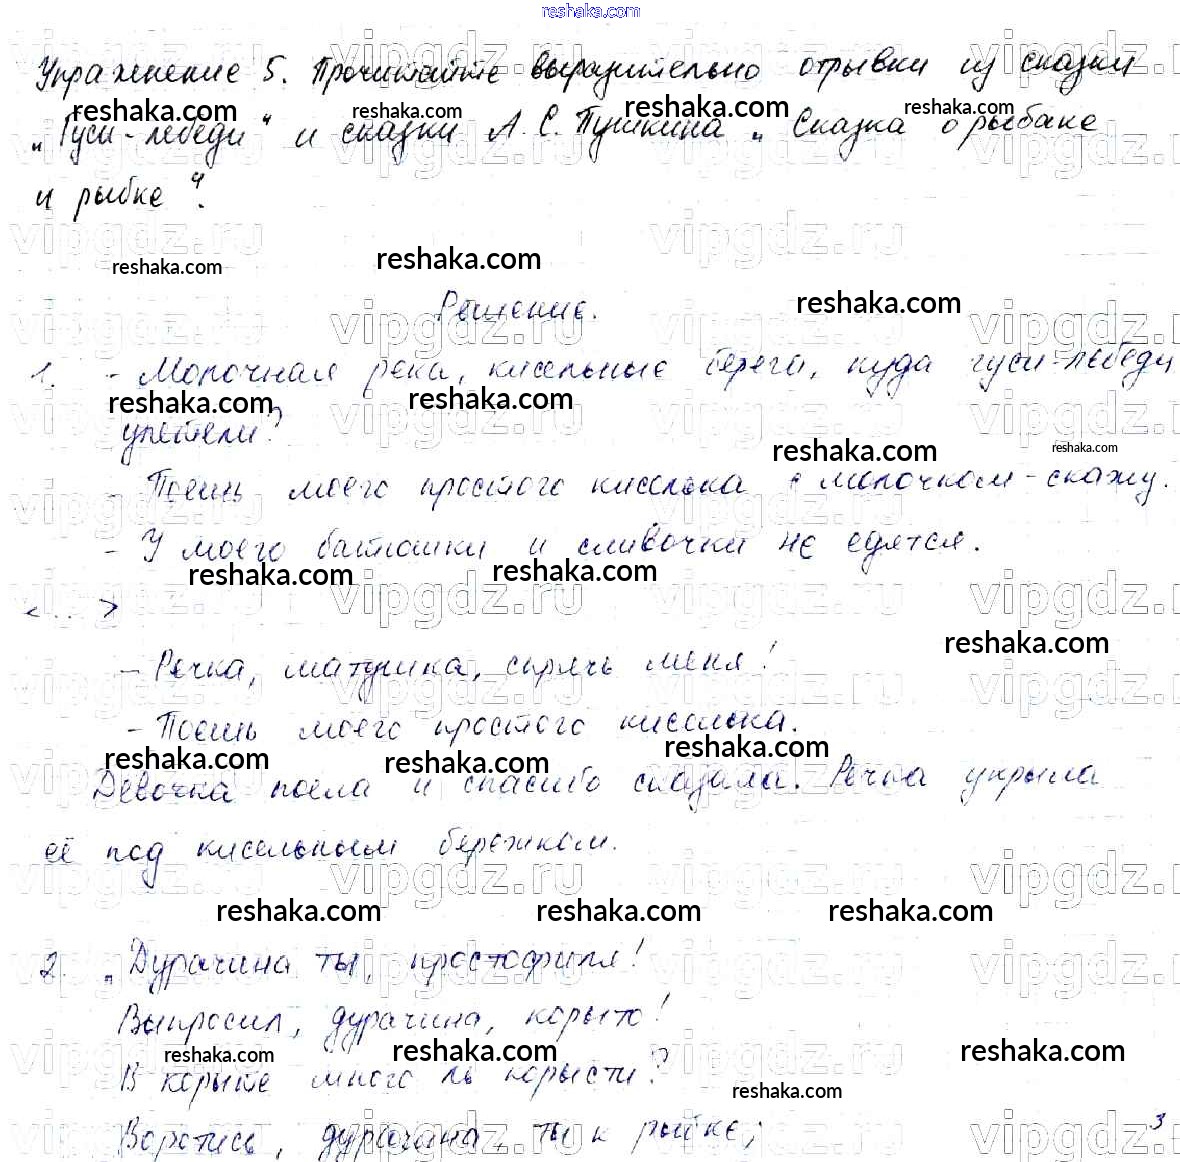 reshaka.com
Упражнение 5. Прочитайте выразительно отрывки из сказки
reshaka.com reshaka.com reshaka.com reshaka.com
„Гуси-лебеди“ и сказки А. С. Пушкина „Сказка о рыбаке
и рыбке“.
vipgdz.ru vipgdz.ru
reshaka.com reshaka.com
reshaka.com
Решение.
vipgdz.ru vipgdz.ru
1. - Молочная река, кисельные берега, куда гуси-лебеди
reshaka.com reshaka.com
улетели?
reshaka.com reshaka.com
- Поешь моего простого киселька с молочком - скажу.
- У моего батюшки и сливочки не едятся.
reshaka.com reshaka.com
<...>
reshaka.com
- Речка, матушка, спрячь меня!
- Поешь моего простого киселька.
reshaka.com reshaka.com reshaka.com
Девочка поела и спасибо сказала. Речка укрыла
её под кисельным бережком.
vipgdz.ru vipgdz.ru vipgdz.ru
reshaka.com reshaka.com reshaka.com
2. „Дурачина ты, простофиля!
Выпросил, дурачина, корыто!
reshaka.com reshaka.com reshaka.com
В корыте много ль корысти?
reshaka.com
Воротись, дурачина, ты к рыбке;
3